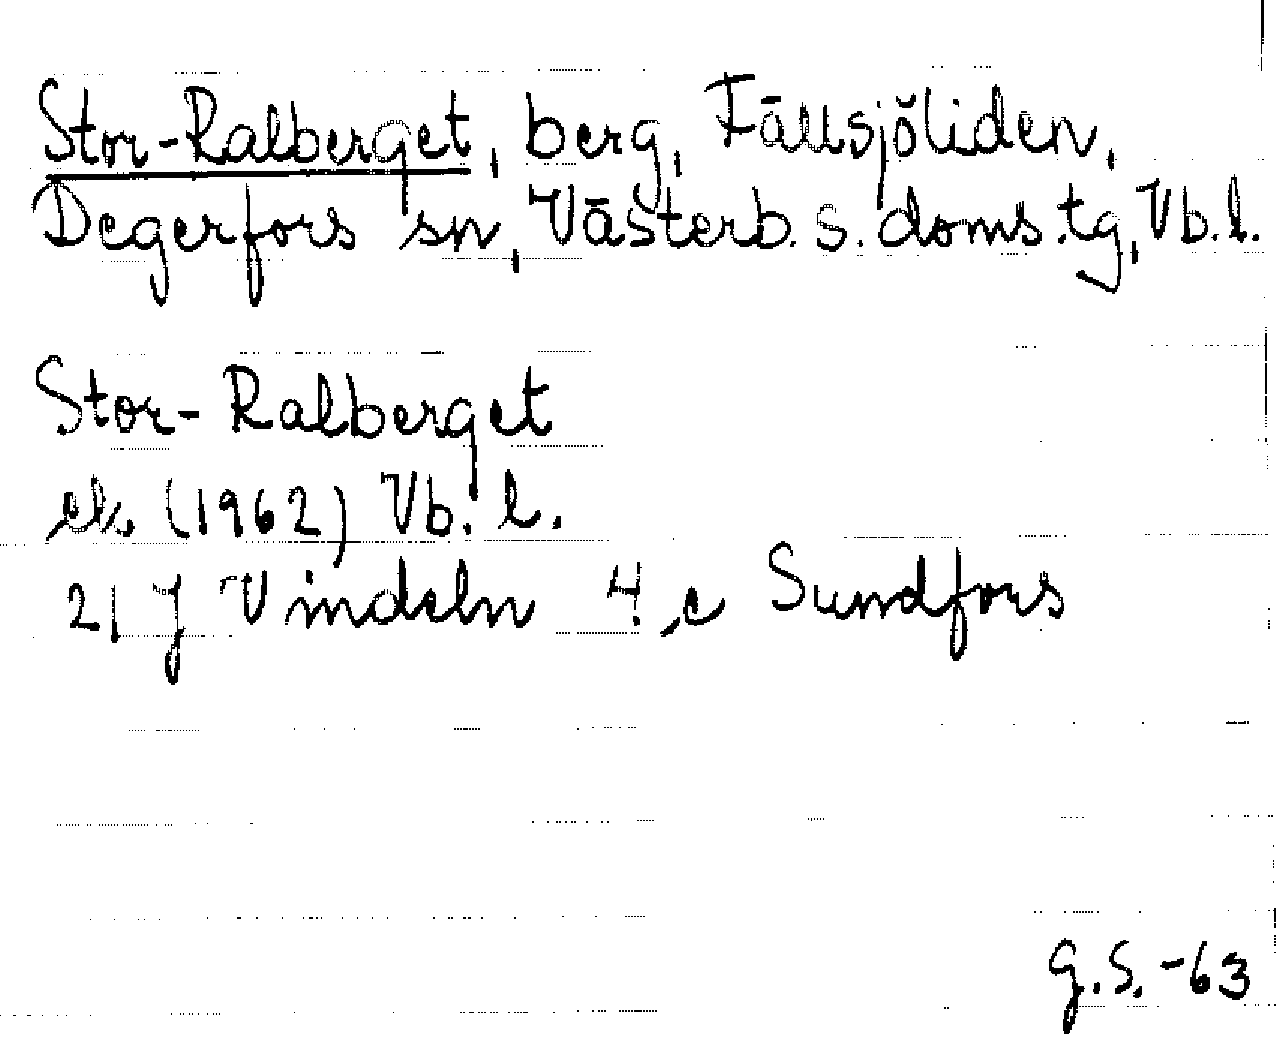 Stor-Ralberget, berg, Fällsjöliden,
Degerfors sn, Västerb. s. doms.tg, Vb. l.
Stor-Ralberget
ek (1962) Vb. l.
21 J Vindeln 4, c Sundfors
G.S. -63